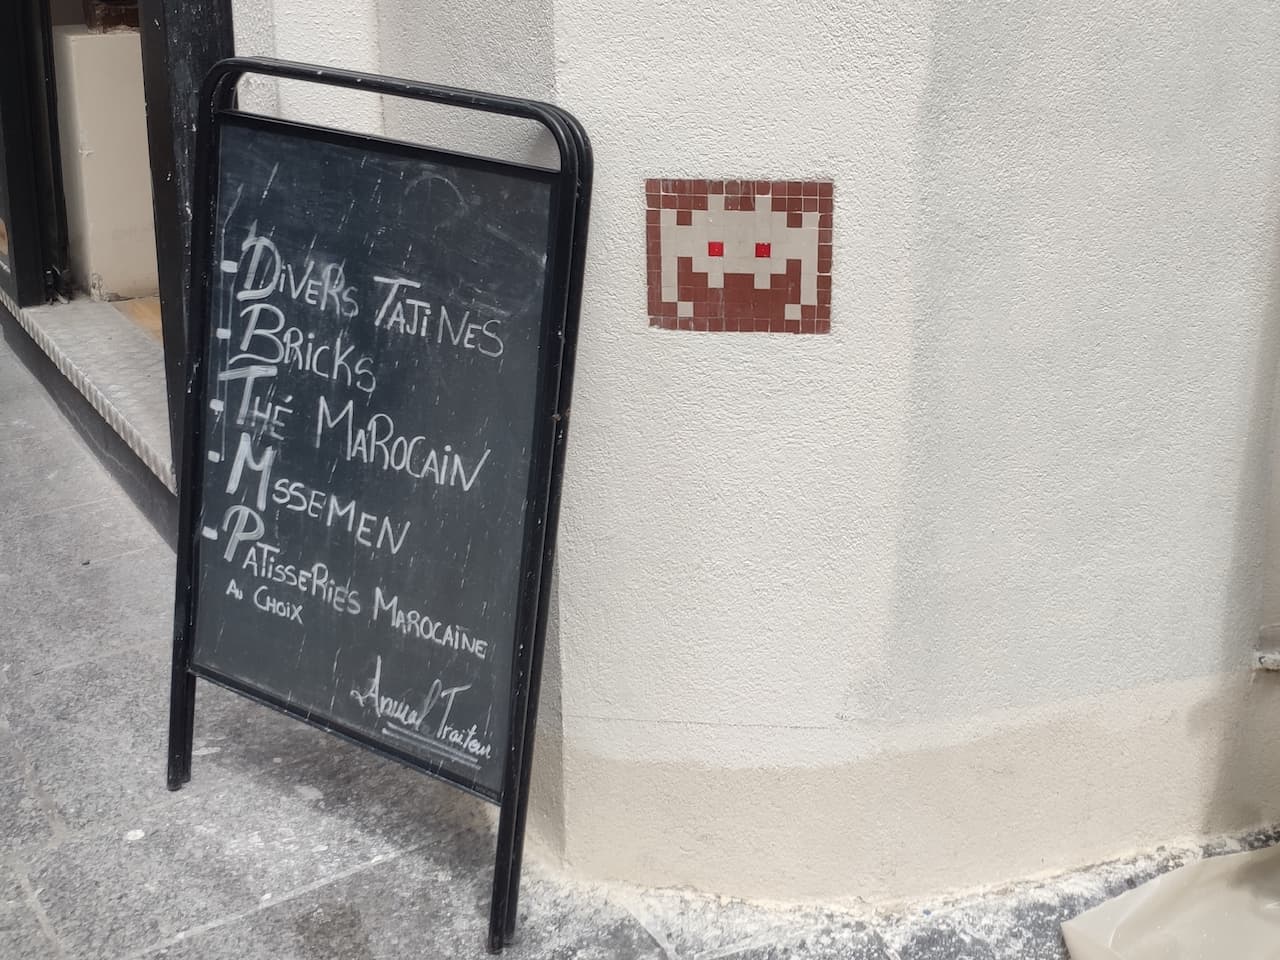 - Divers Tajines
- Bricks
- Thé Marocain
- Mssemen
- Patisseries Marocaine
Au Choix
Traiteur